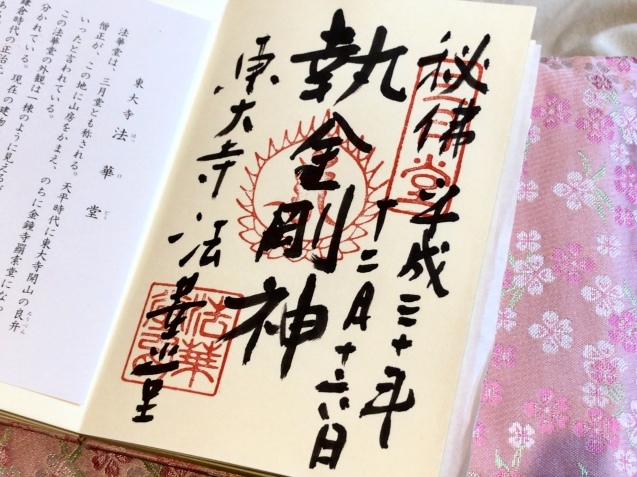 秘佛 平成三十年
十二月十六日
執金剛神
東大寺法華堂
三月堂
東大寺 法華堂
法華堂は、三月堂とも称される。天平時代に東大寺開山の良弁
僧正が、この地に山房をかまえ、のちに金鐘寺羂索堂にな
いったと言われている。
この法華堂の外観は一棟のように見えるが
分かれている。現在の建物
鎌倉時代の正治